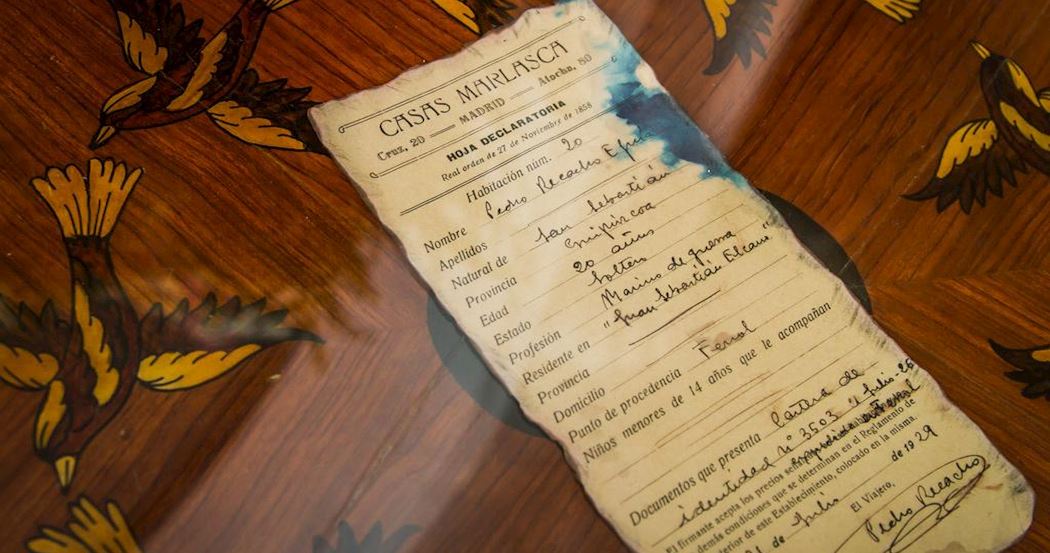 CASAS MARLASCA
Cruz, 20 — MADRID — Atocha, 80
HOJA DECLARATORIA
Real orden de 27 de Noviembre de 1858
Habitación núm. 20
Nombre Pedro Recacho
Apellidos
Natural de San Sebastián
Provincia Guipúzcoa
Edad 20 años
Estado Soltero
Profesión Marino de guerra
Residente en "Juan Sebastián Elcano"
Provincia
Domicilio
Punto de procedencia Ferrol
Niños menores de 14 años que le acompañan
Documentos que presenta Cartera de
identidad nº 3503 Julio-26
expedida en Ferrol
El firmante acepta los precios
demás condiciones que se determinan en el Reglamento de
interior de este Establecimiento, colocado en la misma.
de Julio de 1929
El Viajero,
Pedro Recacho